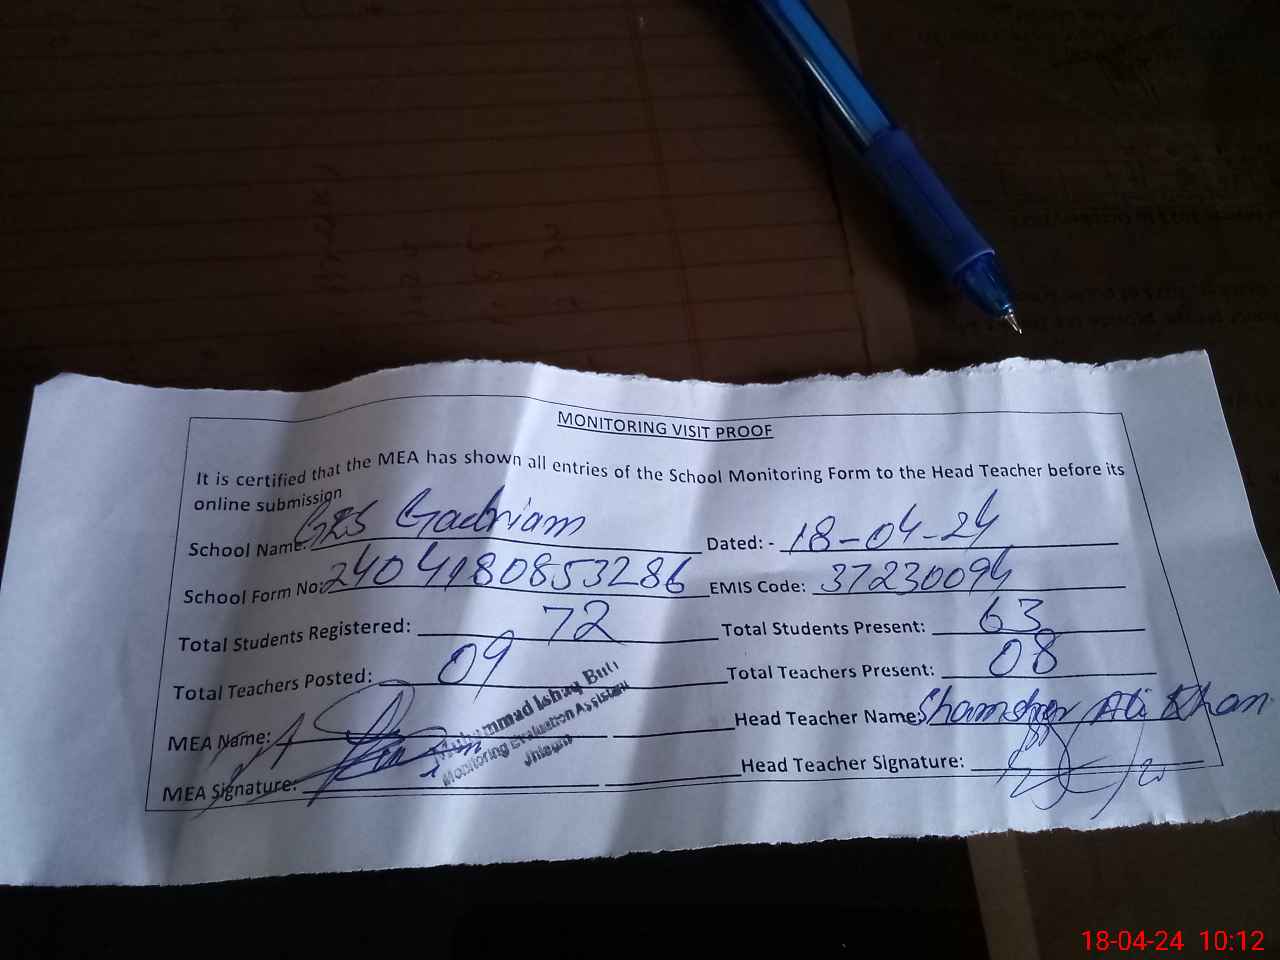 MONITORING VISIT PROOF
It is certified that the MEA has shown all entries of the School Monitoring Form to the Head Teacher before its
online submission
School Name: GES Gadriam Dated: - 18-04-24
School Form No: 2404180853286 EMIS Code: 37230094
Total Students Registered: 72 Total Students Present: 63
Total Teachers Posted: 09 Total Teachers Present: 08
MEA Name: Head Teacher Name: Shamsher Ali Khan
MEA Signature: Head Teacher Signature:
Muhammad Ishaq Butt
Monitoring Evaluation Assistant
Jhleum
18-04-24 10:12